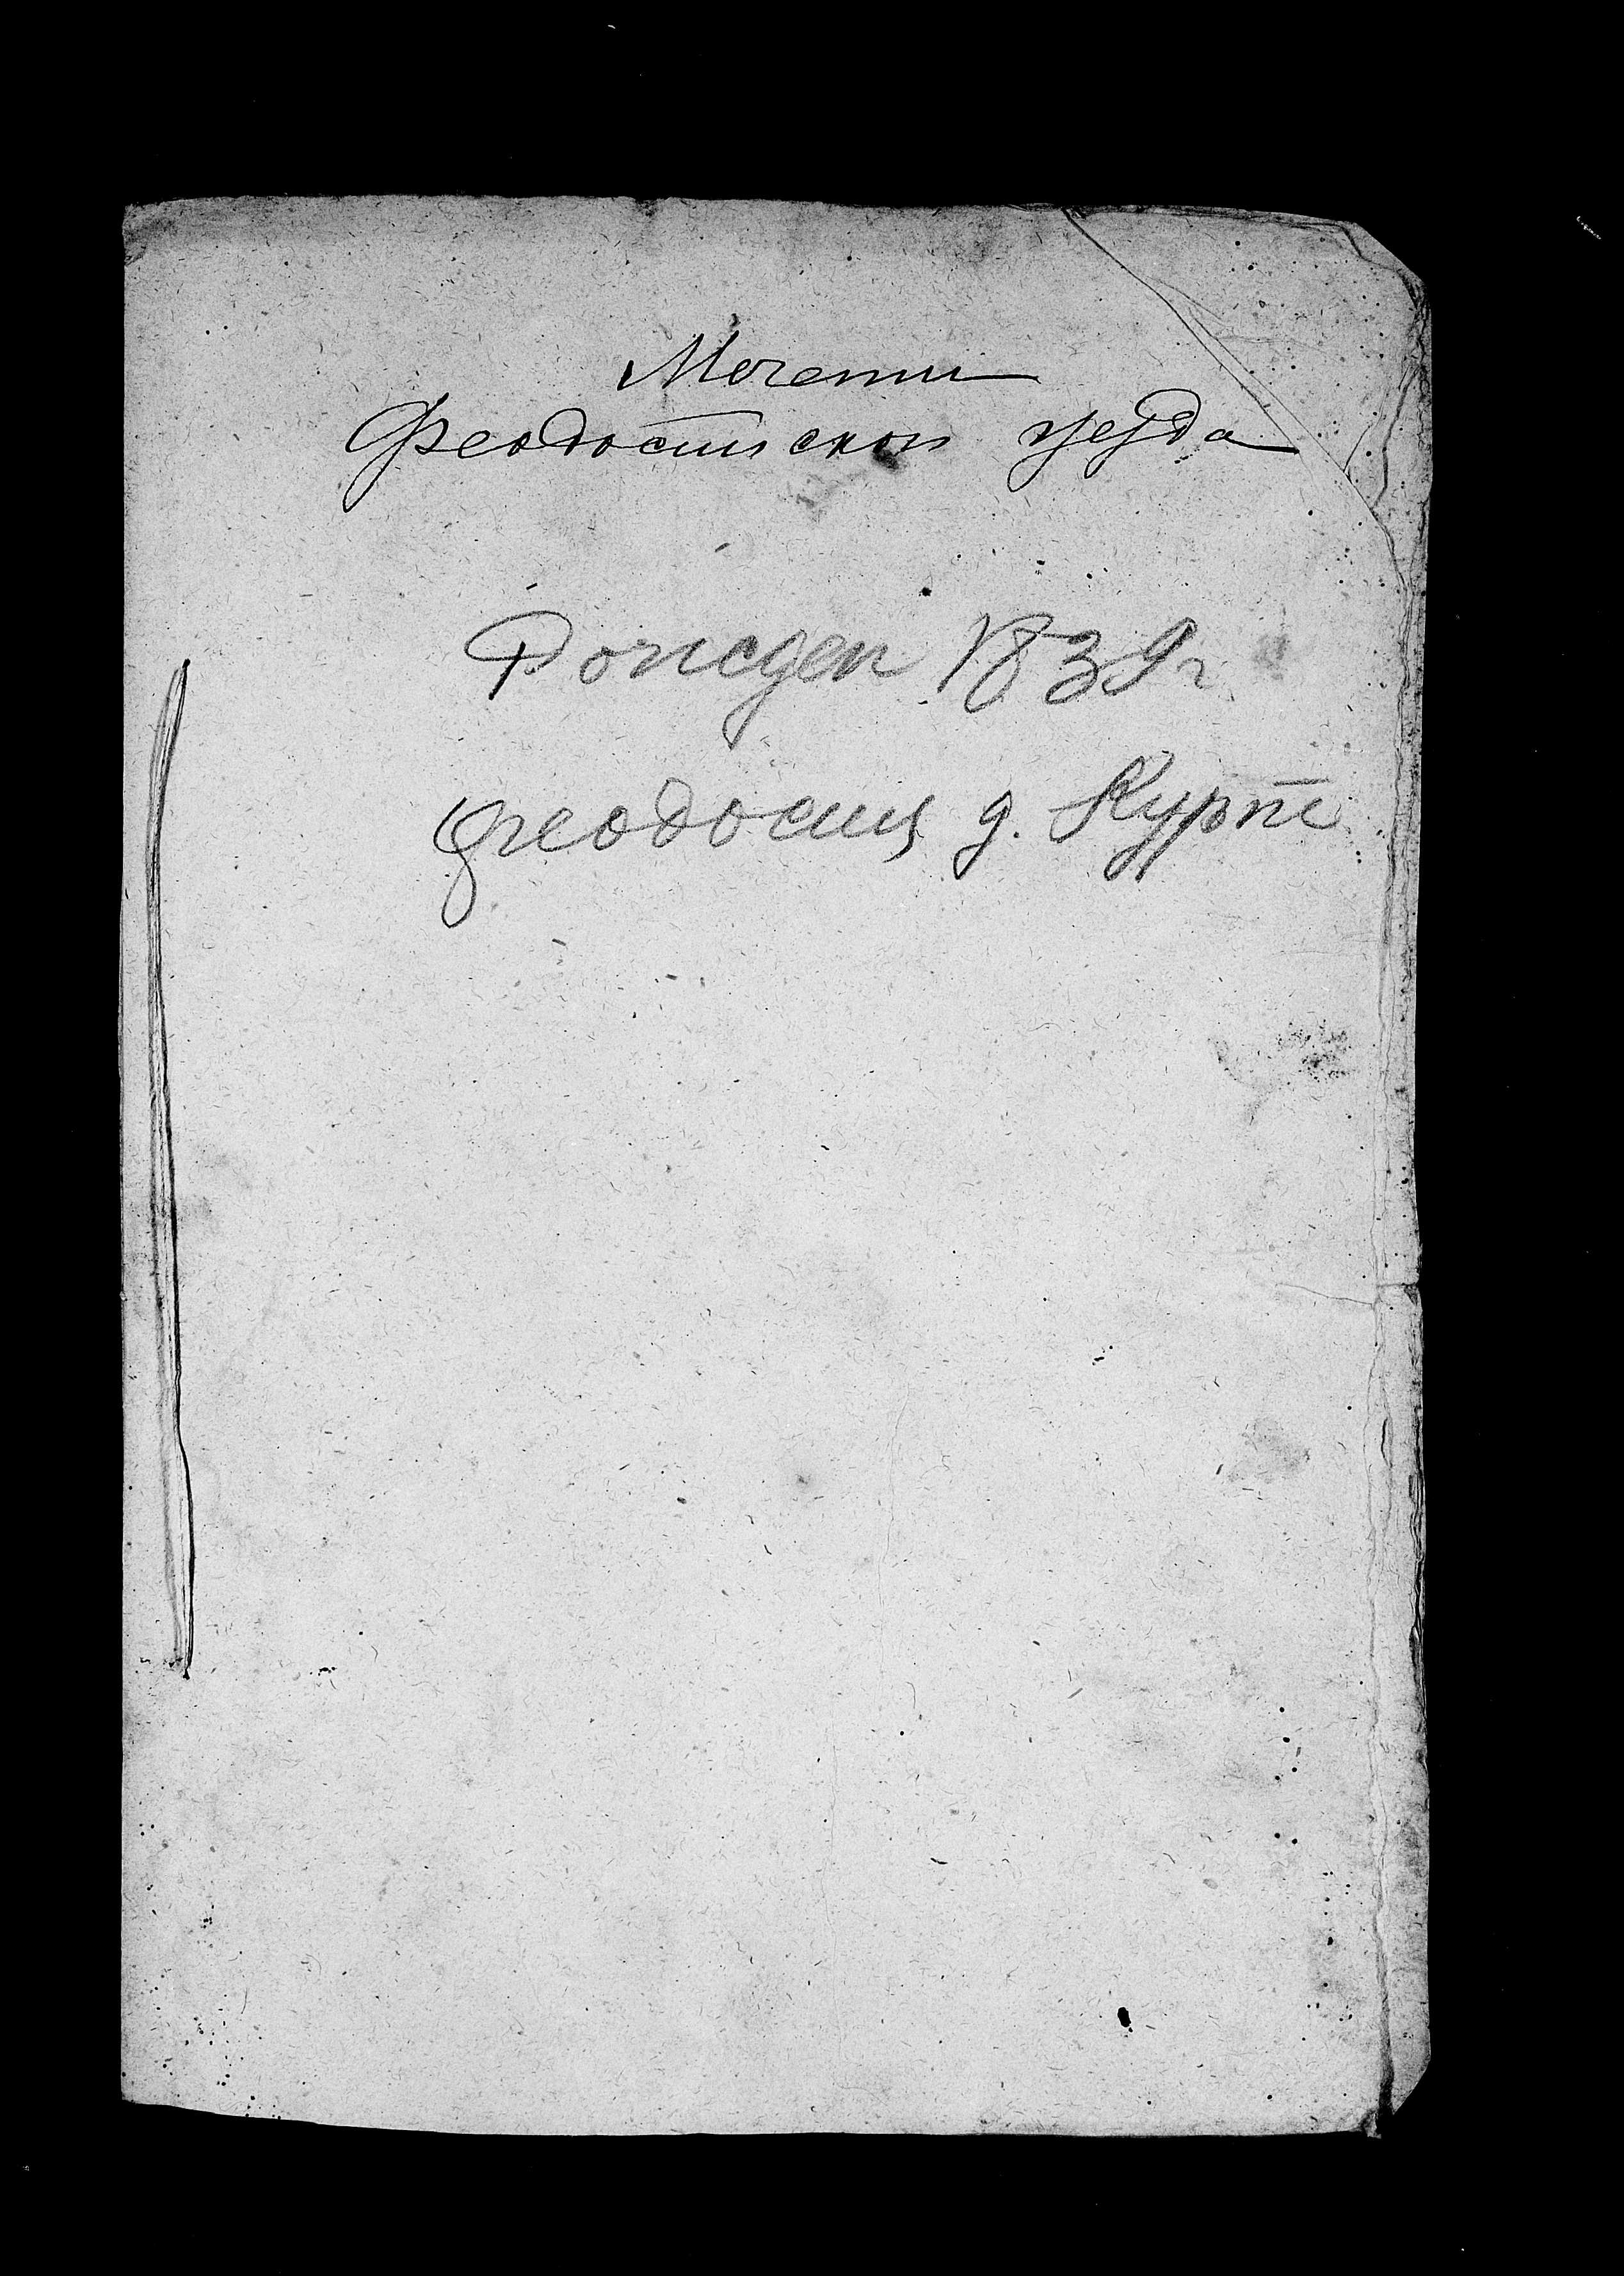 Мечети
Феодосийской уезда
Рожден 1839г
Феодосия д. Курпе